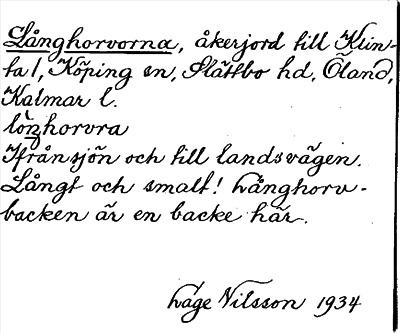 Långhorvorna, åkerjord till Klin-
ta 1, Köping sn, Slättbo hd, Öland,
Kalmar l.
lòŋhorvra
Ifrån sjön och till landsvägen.
Långt och smalt! Långhorv-
backen är en backe här.
Låge Nilsson 1934